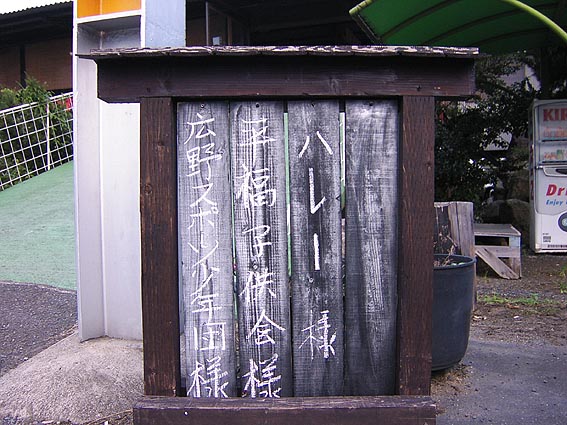 ハレー 様
平福子供会様
広野スポーツ少年団様
Enjoy